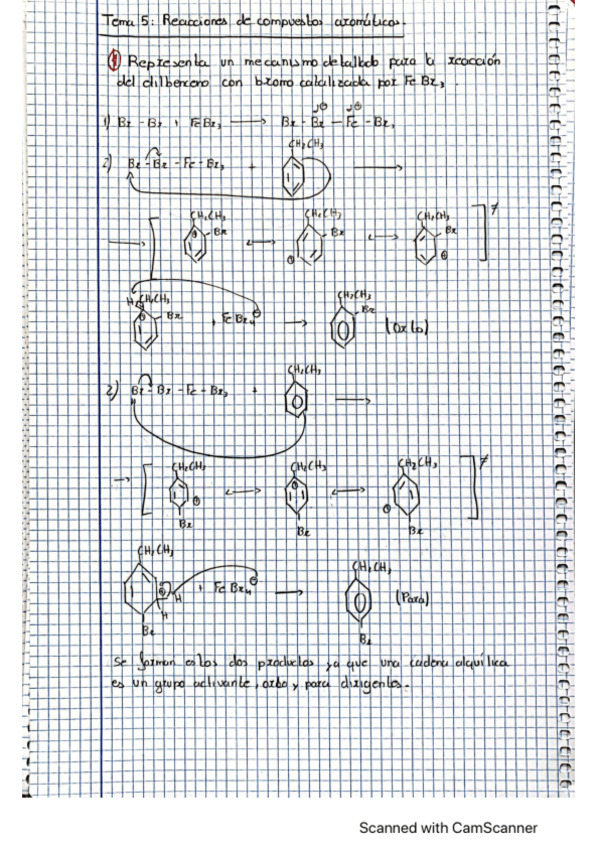 Tema 5: Reacciones de compuestos aromáticos.
① Representa un mecanismo detallado para la reacción
del etilbenceno con bromo catalizada por FeBr₃.
1) Br - Br + FeBr₃ → Br - Br - Fe - Br₃
CH₂CH₃
2) Br - Br - Fe - Br₃ + →
CH₂CH₃ CH₂CH₃ CH₂CH₃
Br Br Br
H CH₂CH₃ CH₂CH₃
Br + FeBr₄⊖ → Br (Orto)
CH₂CH₃
2) Br - Br - Fe - Br₃ + →
CH₂CH₃ CH₂CH₃ CH₂CH₃
Br Br Br
CH₂CH₃ CH₂CH₃
H + FeBr₄⊖ → (Para)
H
Br Br
Se forman estos dos productos ya que una cadena alquílica
es un grupo activante, orto y para dirigentes.
Scanned with CamScanner